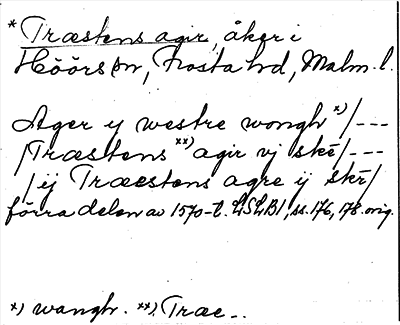 * Træstens agir, åker i
Höörs sn, Frosta hd, Malm. l.
Ager ij westre wongh x) /---
/Træstens xx) agir vj skē/---
/ij Træstens agre ij skē/
förra delen av 1570-t. LSLB1, ss. 176, 178. orig.
x) wangh. xx) Trae..